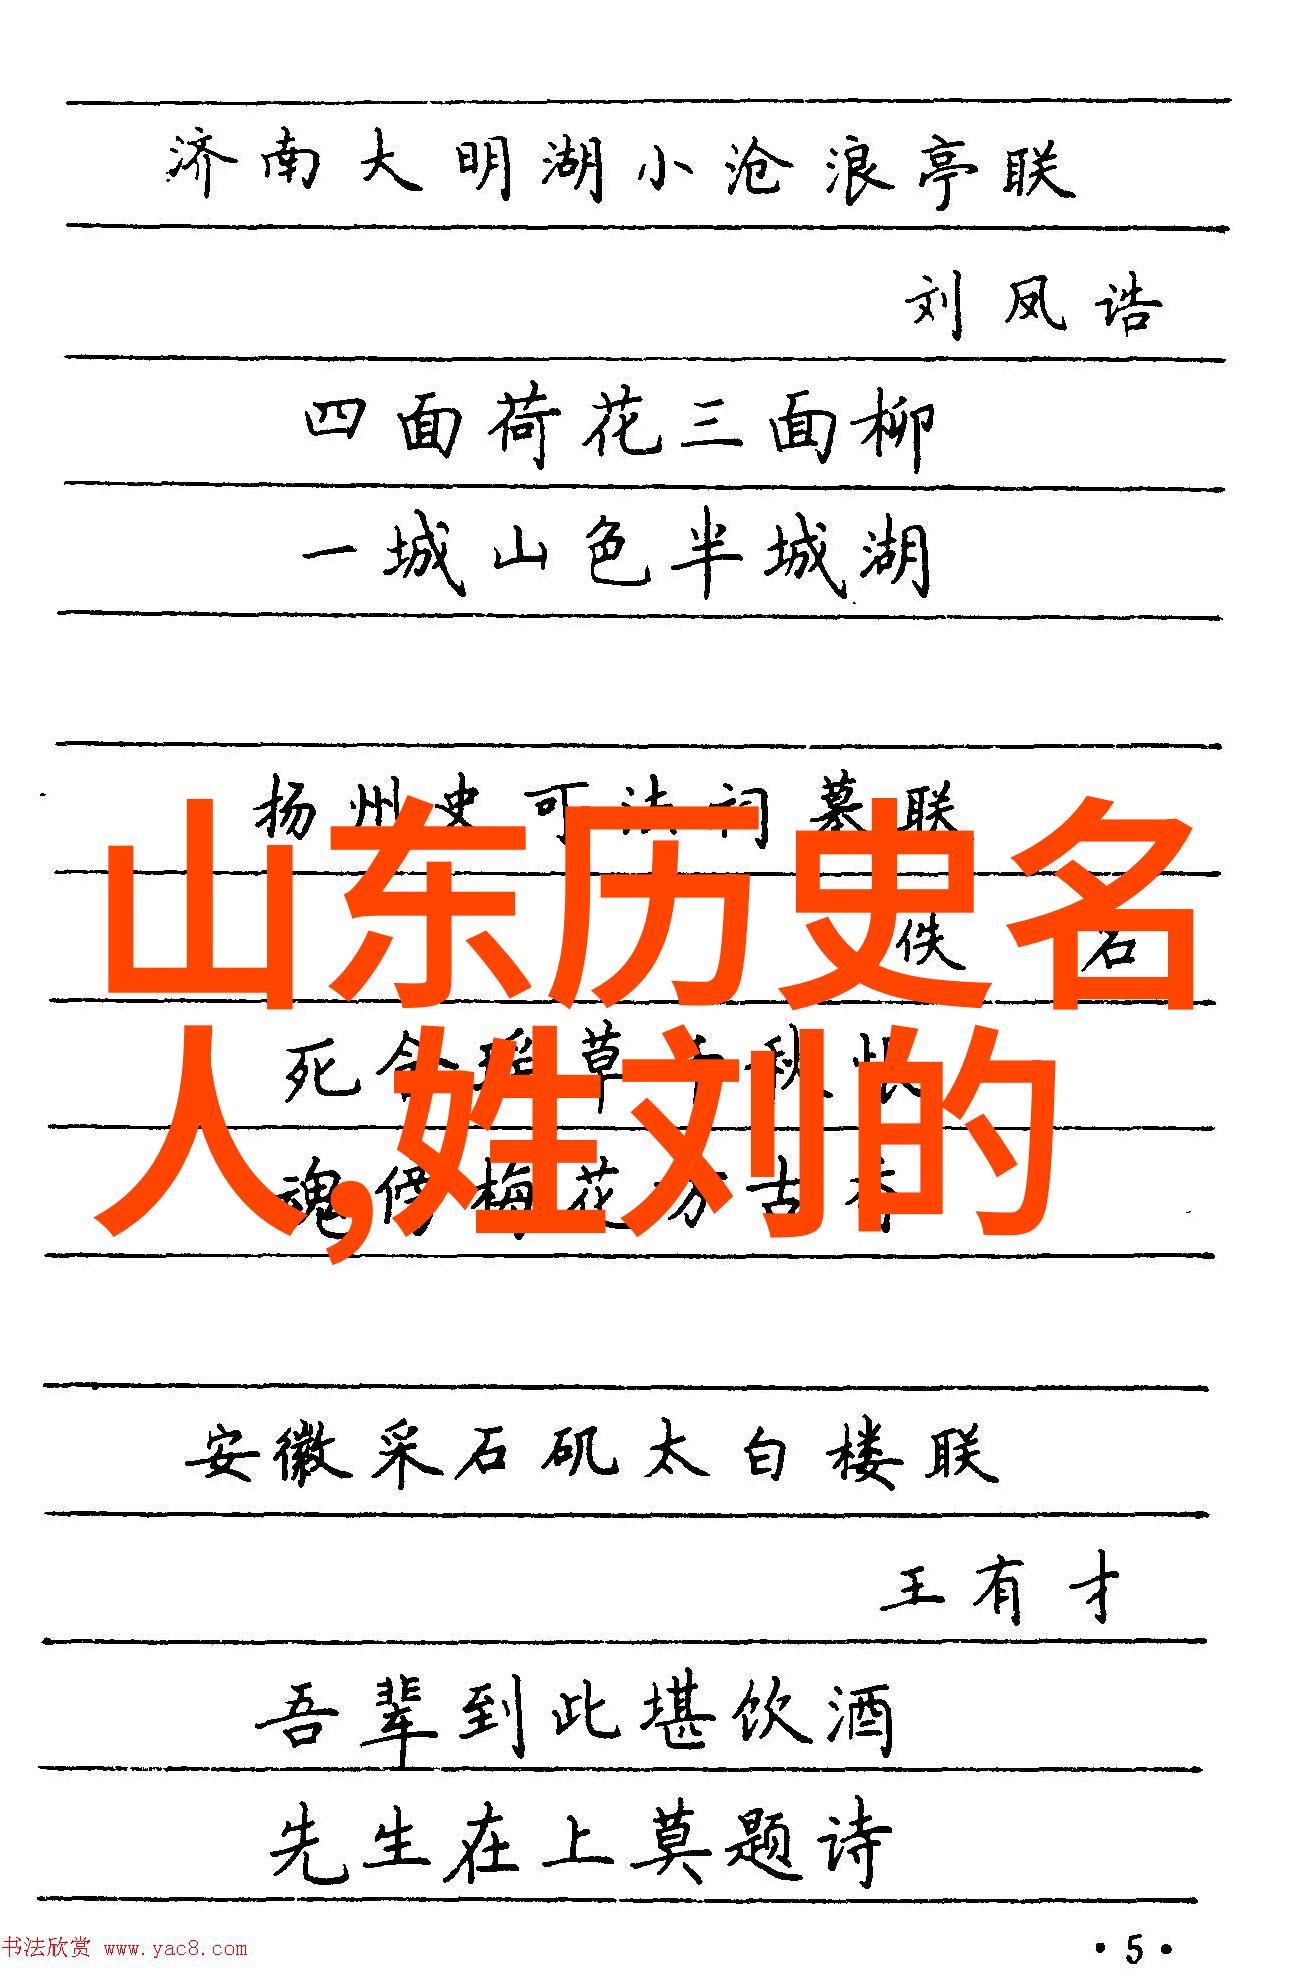 济南大明湖小沧浪亭联
刘凤诰
四面荷花三面柳
一城山色半城湖
扬州史可法祠墓联
佚名
山东历史名
人,姓刘的
死令瑶草千秋恨
魂傍梅花万古香
安徽采石矶太白楼联
王有才
吾辈到此堪饮酒
先生在上莫题诗
书法欣赏 www.yac8.com
·5·